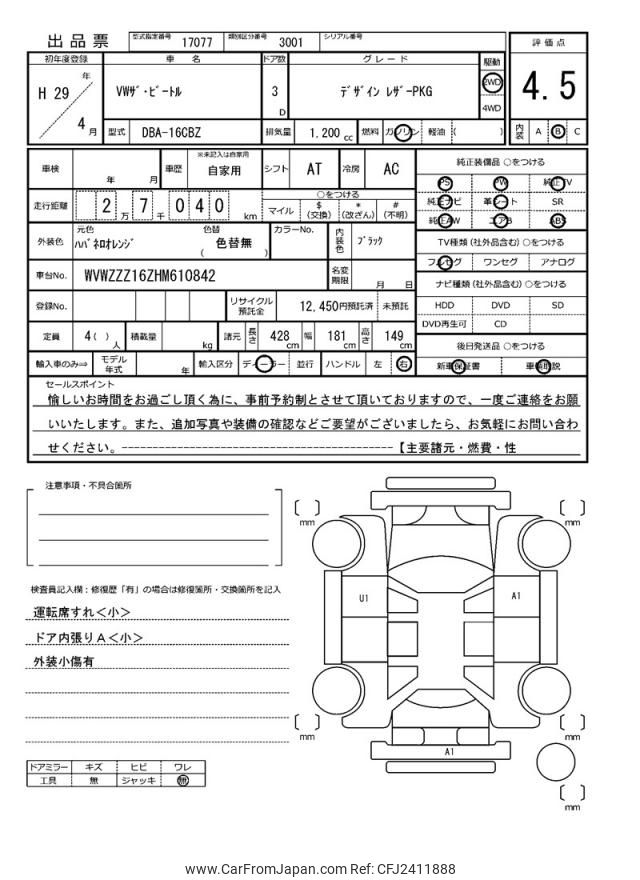 出品票 型式指定番号 17077 類別区分番号 3001 シリアル番号
評価点
4.5
内装 A B C
初年度登録 車名 ドア数 グレード 駆動
H 29 年 4 月
VWザ・ビートル 3 D デザイン レザーPKG 2WD 4WD
型式 DBA-16CBZ 排気量 1.200 cc 燃料 ガソリン 軽油 ( )
車検 年 月 車歴 ※未記入は自家用 自家用 シフト AT 冷房 AC
走行距離 2 万 7 千 0 4 0 km ○をつける
マイル $ (交換) * (改ざん) # (不明)
外装色 元色 ハバネロオレンジ 色替 色替無 ( ) カラーNo. 内装色 ブラック
車台No. WVWZZZ16ZHM610842 名変期限 月 日
登録No. リサイクル預託金 12,450円預託済 未預託
定員 4( ) 人 積載量 kg 諸元 長さ 428 cm 幅 181 cm 高さ 149 cm
輸入車のみ⇒ モデル年式 年 輸入区分 ディーラー 並行 ハンドル 左 右
純正装備品 ○をつける
PS PW 純正TV
純正ナビ 革シート SR
純正AW エアB ABS
TV種類 (社外品含む) ○をつける
フルセグ ワンセグ アナログ
ナビ種類 (社外品含む) ○をつける
HDD DVD SD
DVD再生可 CD
後日発送品 ○をつける
新車保証書 車輌取説
セールスポイント
愉しいお時間をお過ごし頂く為に、事前予約制とさせて頂いておりますので、一度ご連絡をお願
いいたします。また、追加写真や装備の確認などご要望がございましたら、お気軽にお問い合わ
せください。----------------------------------------【主要諸元・燃費・性
注意事項・不具合箇所
検査員記入欄：修復歴「有」の場合は修復箇所・交換箇所を記入
運転席すれ＜小＞
ドア内張りＡ＜小＞
外装小傷有
ドアミラー キズ ヒビ ワレ
工具 無 ジャッキ 無
[ ] mm
[ ] mm
U1
A1
[ ] mm
[ ] mm
A1
[ ] mm
www.CarFromJapan.com Ref: CFJ2411888